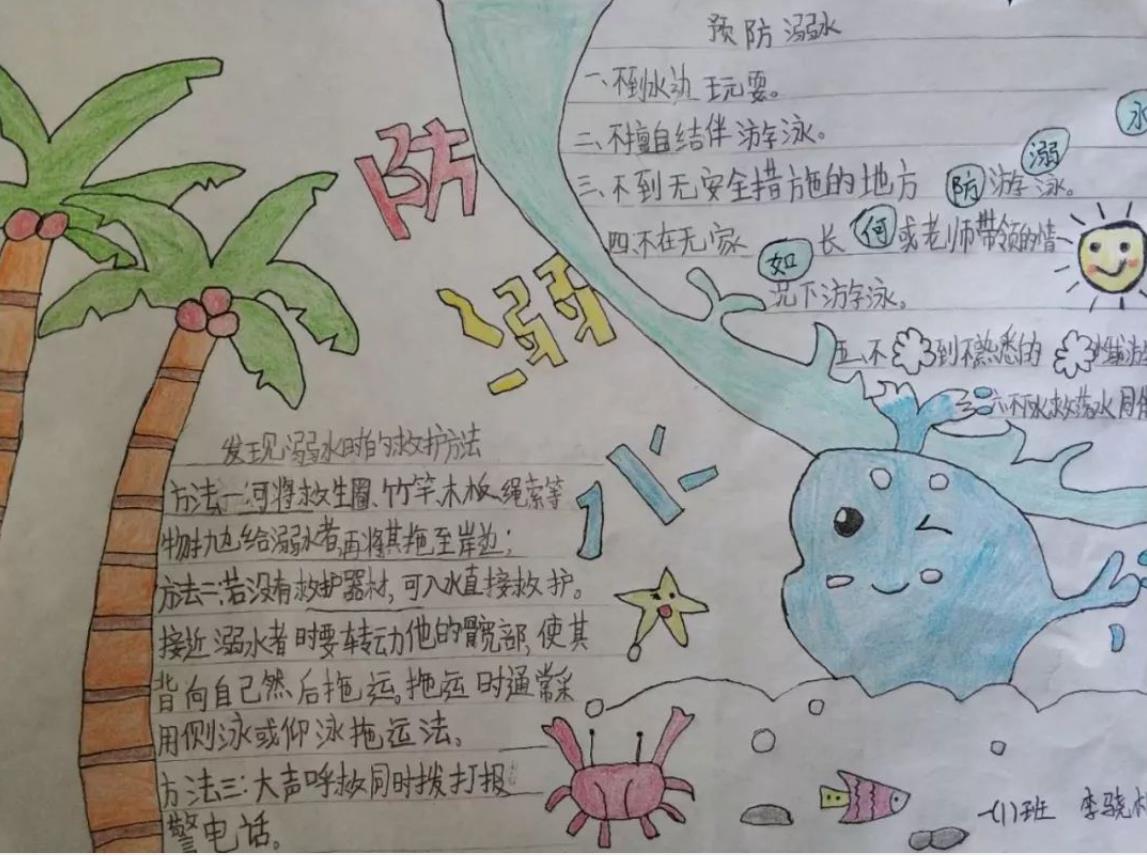 预防溺水
一、不到水边玩耍。
二、不擅自结伴游泳。
三、不到无安全措施的地方游泳。
四、不在无家长或老师带领的情
况下游泳。
五、不到不熟悉的
六、不
水
溺
防
何
如
防
溺
水
发现溺水时的救护方法
方法一:可将救生圈、竹竿、木板、绳索等
物抛给溺水者,再将其拖至岸边;
方法二:若没有救护器材,可入水直接救护。
接近溺水者时要转动他的髋部,使其
背向自己然后拖运。拖运时通常采
用侧泳或仰泳拖运法。
方法三:大声呼救同时拨打报
警电话。
一(1)班 李骁